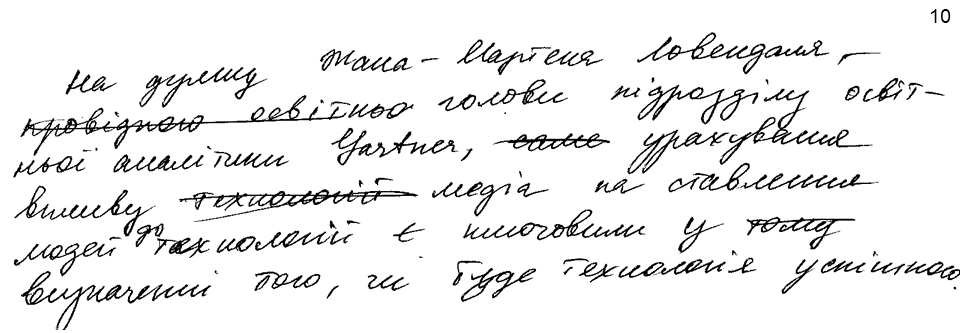 10
На думку Жана-Мартена Ловендаля, –
провідного освітньо голови підрозділу освіт-
ньої аналітики Gartner, саме урахування
впливу технологій медіа на ставлення
людей до технологій є ключовим у тому
визначенні того, чи буде технологія успішною.